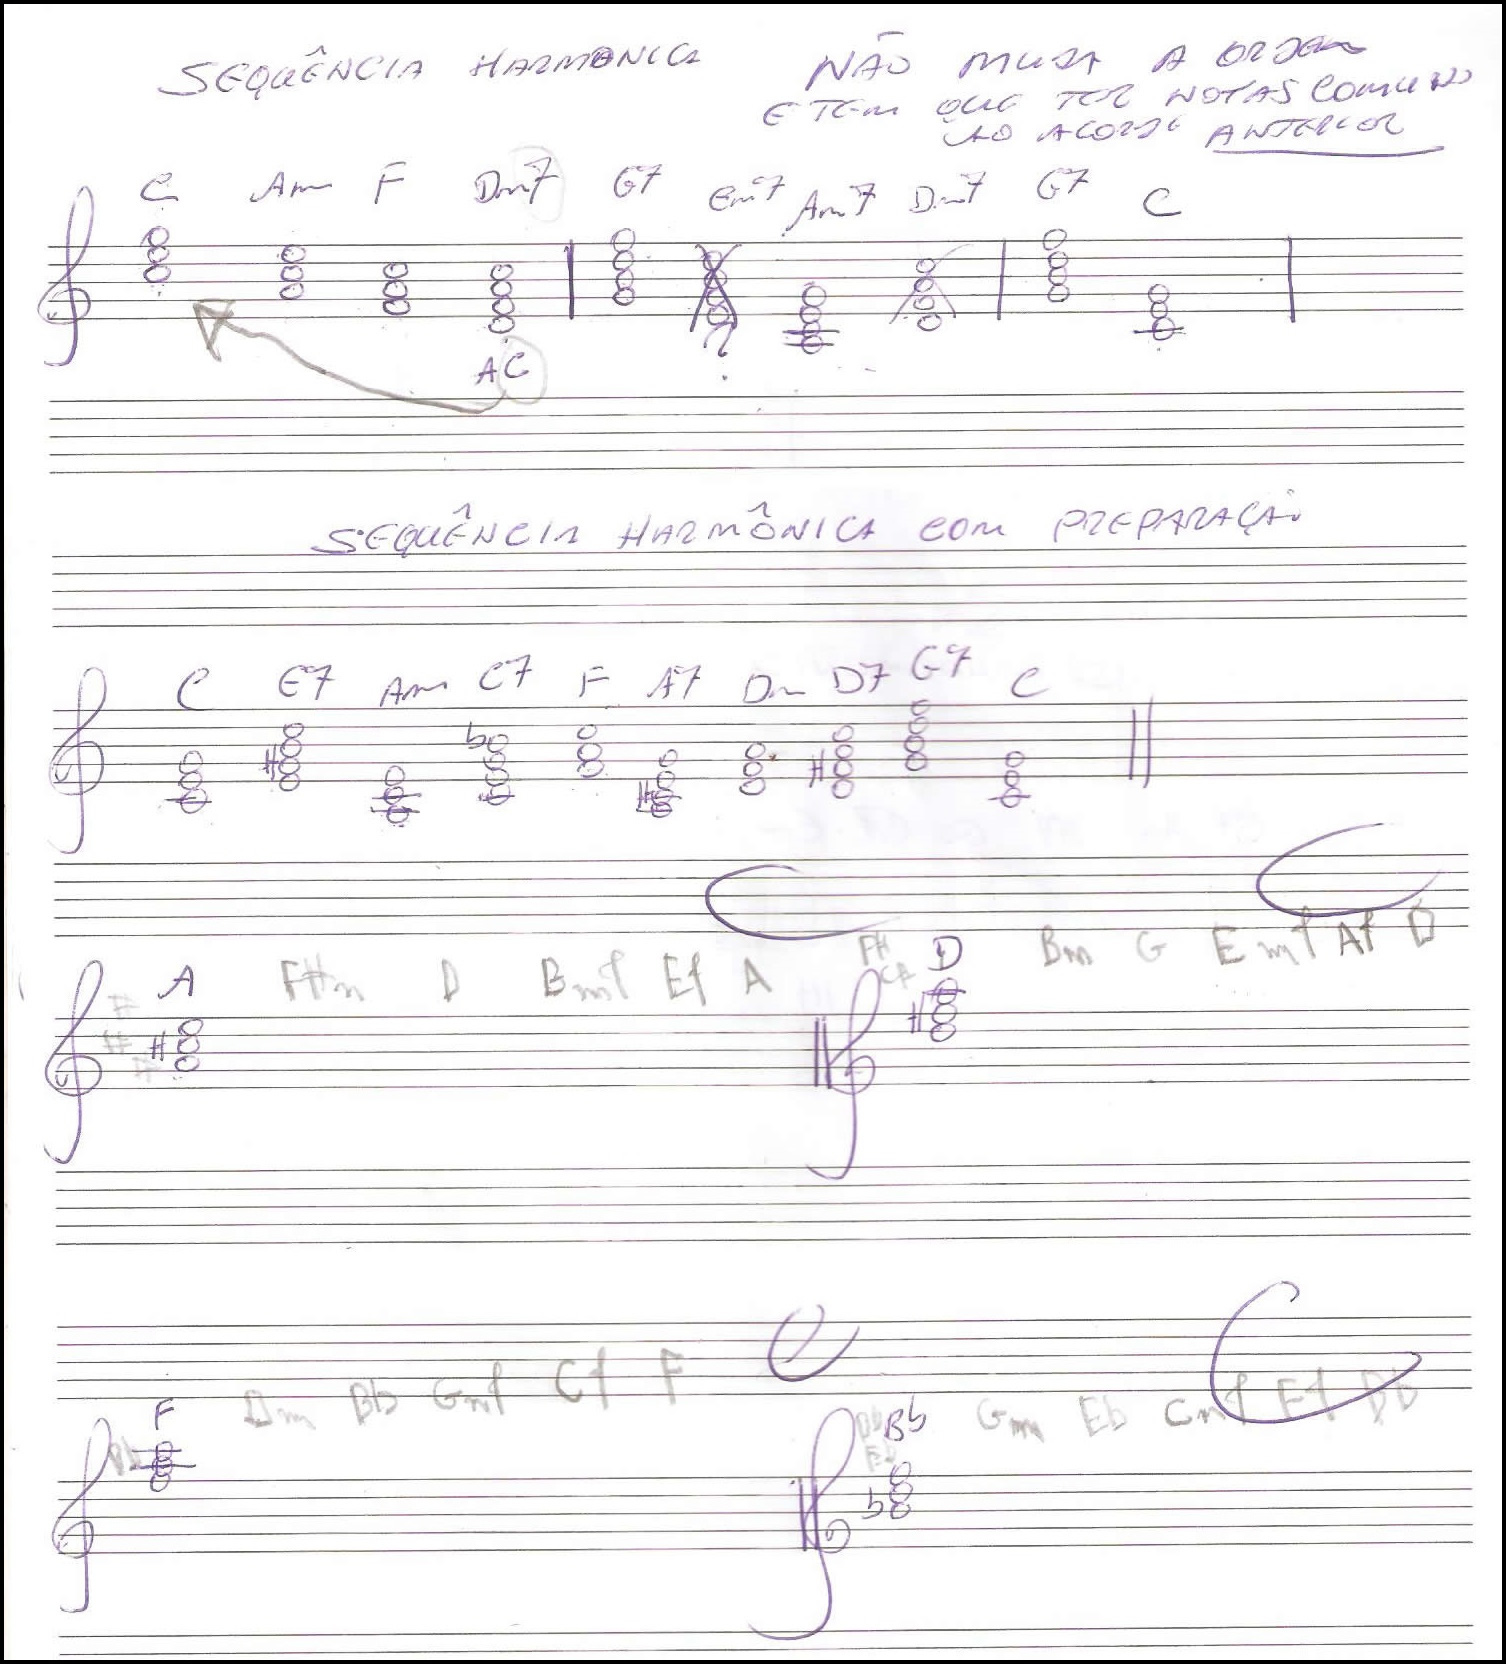 SEQUÊNCIA HARMONICA
NÃO MUDA A ORDEM
E TEM QUE TER NOTAS COMUNS
AO ACORDE ANTERIOR
C Am F Dm7 G7 Em7 Am7 Dm7 G7 C
?
A C
SEQUÊNCIA HARMÔNICA COM PREPARAÇÃO
C E7 Am C7 F A7 Dm D7 G7 C
A F#m D Bm7 E7 A
F#
C#
D Bm G Em7 A7 D
F Dm Bb Gm7 C7 F
Bb
Eb
Bb Gm Eb Cm7 F7 Bb